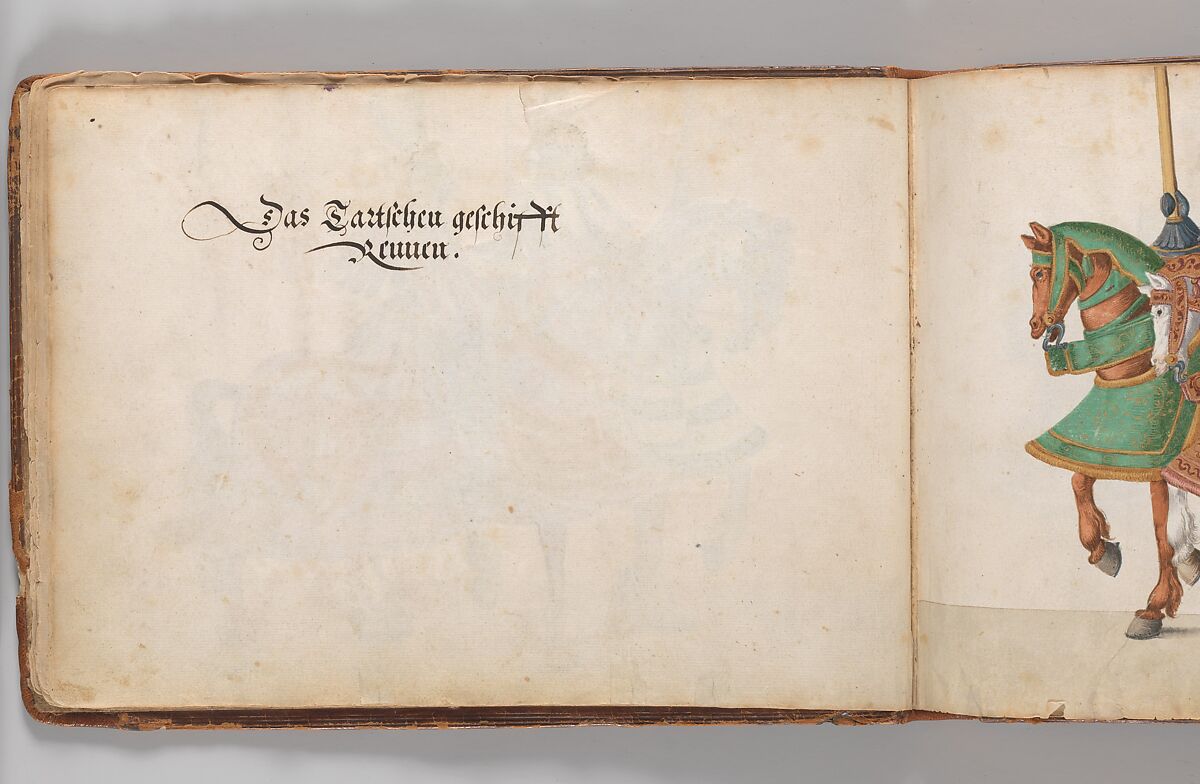 Das Tartschen geschifft
Rennen.